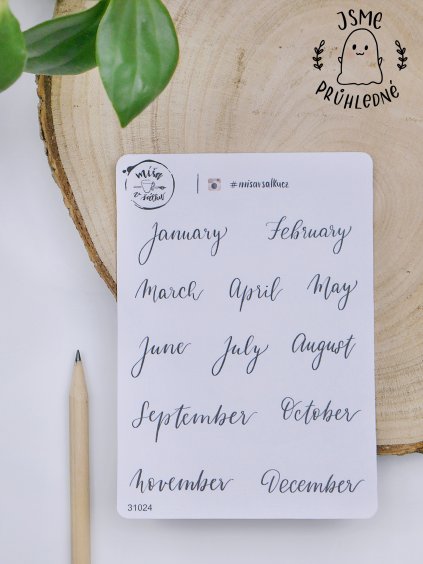 JSME
PRŮHLEDNÉ
míša
ze šálku
#misavsalkucz
January February
March April May
June July August
September October
november December
31024